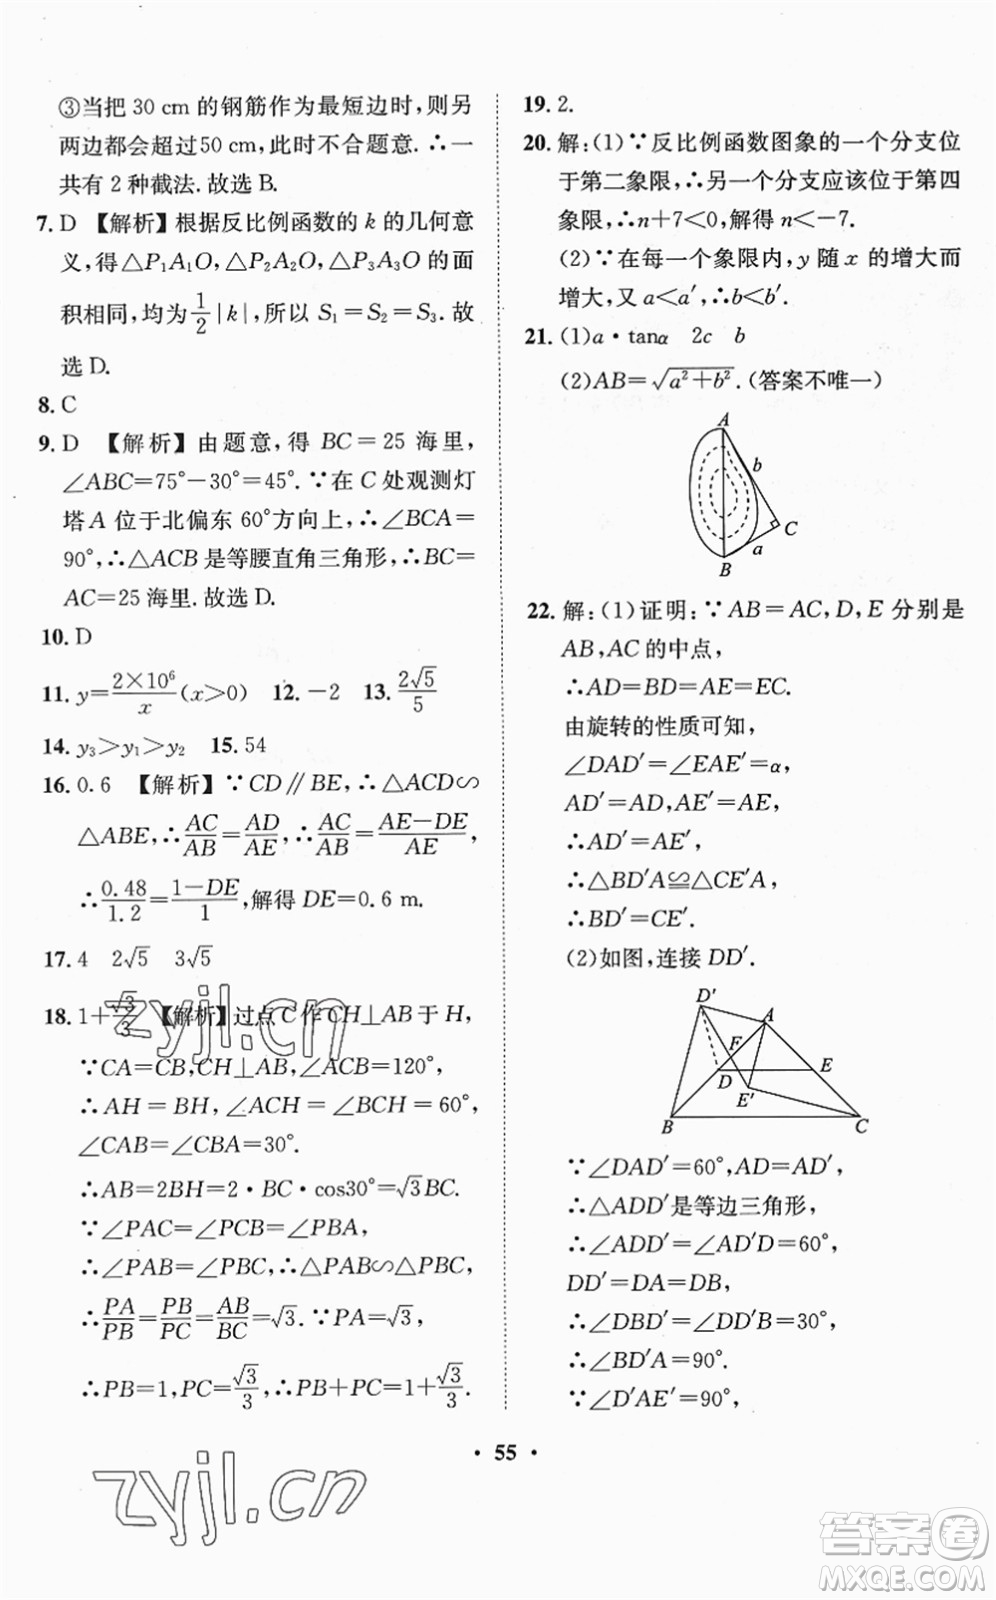 ③当把 30 cm 的钢筋作为最短边时,则另
两边都会超过50 cm,此时不合题意.∴一
共有 2 种截法.故选 B.
7. D 【解析】根据反比例函数的 k 的几何意
义,得△P₁A₁O,△P₂A₂O,△P₃A₃O 的面
积相同,均为1/2|k|,所以 S₁=S₂=S₃.故
选 D.
8. C
9. D 【解析】由题意,得 BC=25 海里,
∠ABC=75°-30°=45°.∵在 C 处观测灯
塔 A 位于北偏东 60°方向上,∴∠BCA=
90°,∴△ACB 是等腰直角三角形,∴BC=
AC=25 海里.故选 D.
10. D
11. y=2×10⁶/x(x>0) 12. -2 13. 2√5/5
14. y₃>y₁>y₂ 15. 54
16. 0.6 【解析】∵CD∥BE,∴△ACD∽
△ABE,∴AC/AB=AD/AE,∴AC/AB=(AE-DE)/AE,
∴0.48/1.2=(1-DE)/1,解得 DE=0.6 m.
17. 4 2√5 3√5
18. 1+√3/3 【解析】过点 C 作 CH⊥AB 于 H,
∵CA=CB,CH⊥AB,∠ACB=120°,
∴AH=BH,∠ACH=∠BCH=60°,
∠CAB=∠CBA=30°.
∴AB=2BH=2·BC·cos30°=√3BC.
∵∠PAC=∠PCB=∠PBA,
∴∠PAB=∠PBC,∴△PAB∽△PBC,
∴PA/PB=PB/PC=AB/BC=√3.∵PA=√3,
∴PB=1,PC=√3/3,∴PB+PC=1+√3/3.
19. 2.
20. 解:(1)∵反比例函数图象的一个分支位
于第二象限,∴另一个分支应该位于第四
象限,∴n+7<0,解得 n<-7.
(2)∵在每一个象限内,y 随 x 的增大而
增大,又 a<a′,∴b<b′.
21. (1)a·tanα 2c b
(2)AB=√(a²+b²).(答案不唯一)
A
b
C
a
B
22. 解:(1)证明:∵AB=AC,D,E 分别是
AB,AC 的中点,
∴AD=BD=AE=EC.
由旋转的性质可知,
∠DAD′=∠EAE′=α,
AD′=AD,AE′=AE,
∴AD′=AE′.
∴△BD′A≌△CE′A,
∴BD′=CE′.
(2)如图,连接 DD′.
D′
A
F
D
E
E′
B
C
∵∠DAD′=60°,AD=AD′,
∴△ADD′是等边三角形,
∴∠ADD′=∠AD′D=60°,
DD′=DA=DB,
∴∠DBD′=∠DD′B=30°,
∴∠BD′A=90°.
∵∠D′AE′=90°,
• 55 •
zyjl.cn
zyjl.cn
答案卷
MXQE.COM